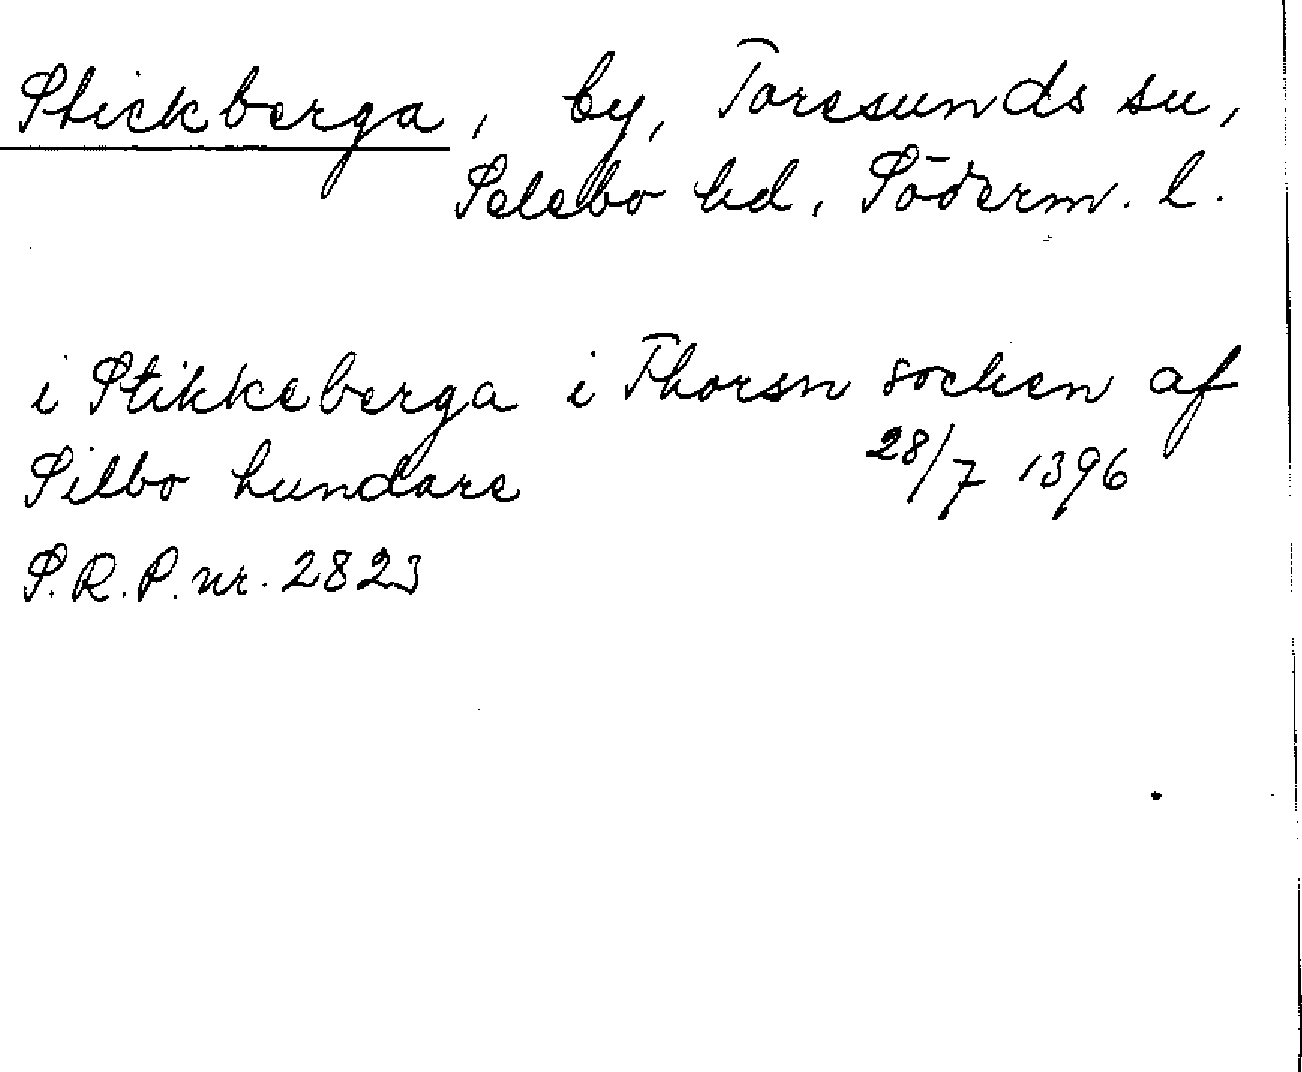 Stickberga, by, Toresunds sn,
Selebo hd, Söderm. l.
i Stikkeberga i Thorsn socken af
Silbo hundare 28/7 1396
S.R.P. nr. 2823